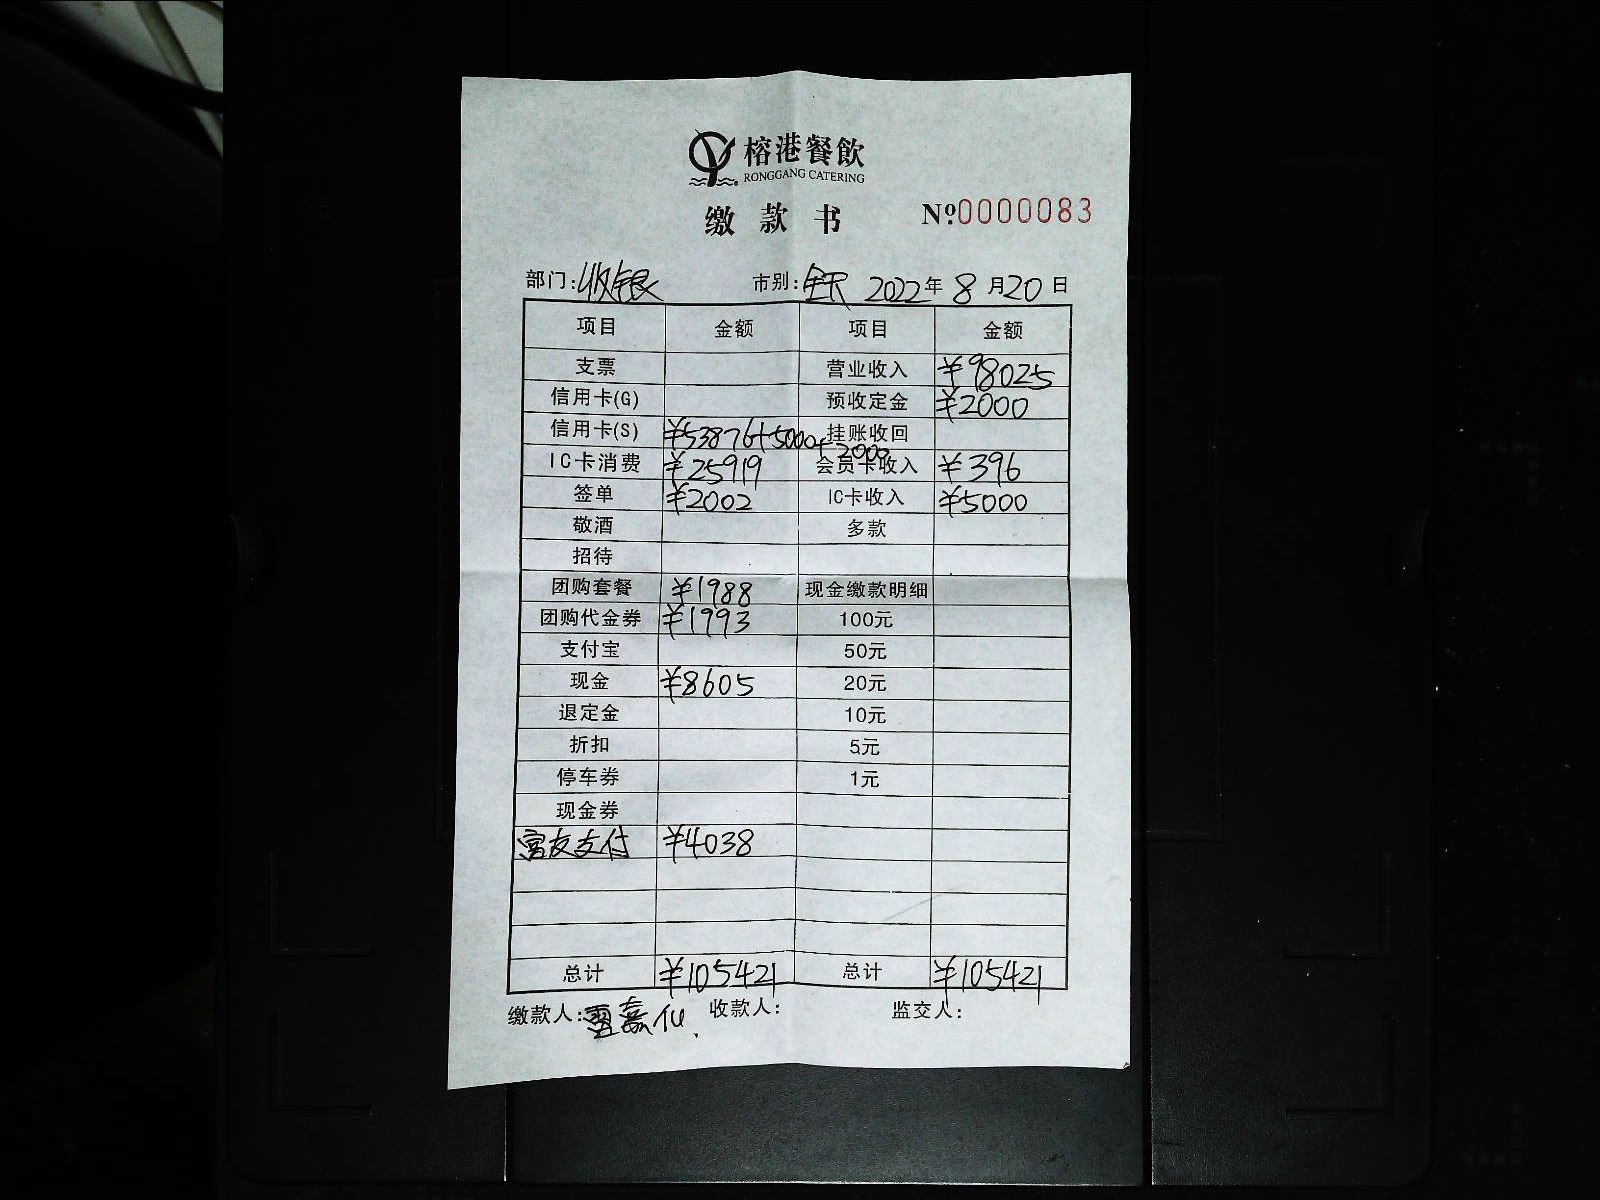 榕港餐飲
RONGGANG CATERING
缴款书 №0000083
部门:收银 市别:全天 2022年8月20日
项目 金额 项目 金额
支票 营业收入 ¥98025
信用卡(G) 预收定金 ¥2000
信用卡(S) ¥53876+5000+2000 挂账收回
IC卡消费 ¥25919 会员卡收入 ¥396
签单 ¥2002 IC卡收入 ¥5000
敬酒 多款
招待
团购套餐 ¥1988 现金缴款明细
团购代金券 ¥1993 100元
支付宝 50元
现金 ¥8605 20元
退定金 10元
折扣 5元
停车券 1元
现金券
富友支付 ¥4038
总计 ¥105421 总计 ¥105421
缴款人: 收款人: 监交人: